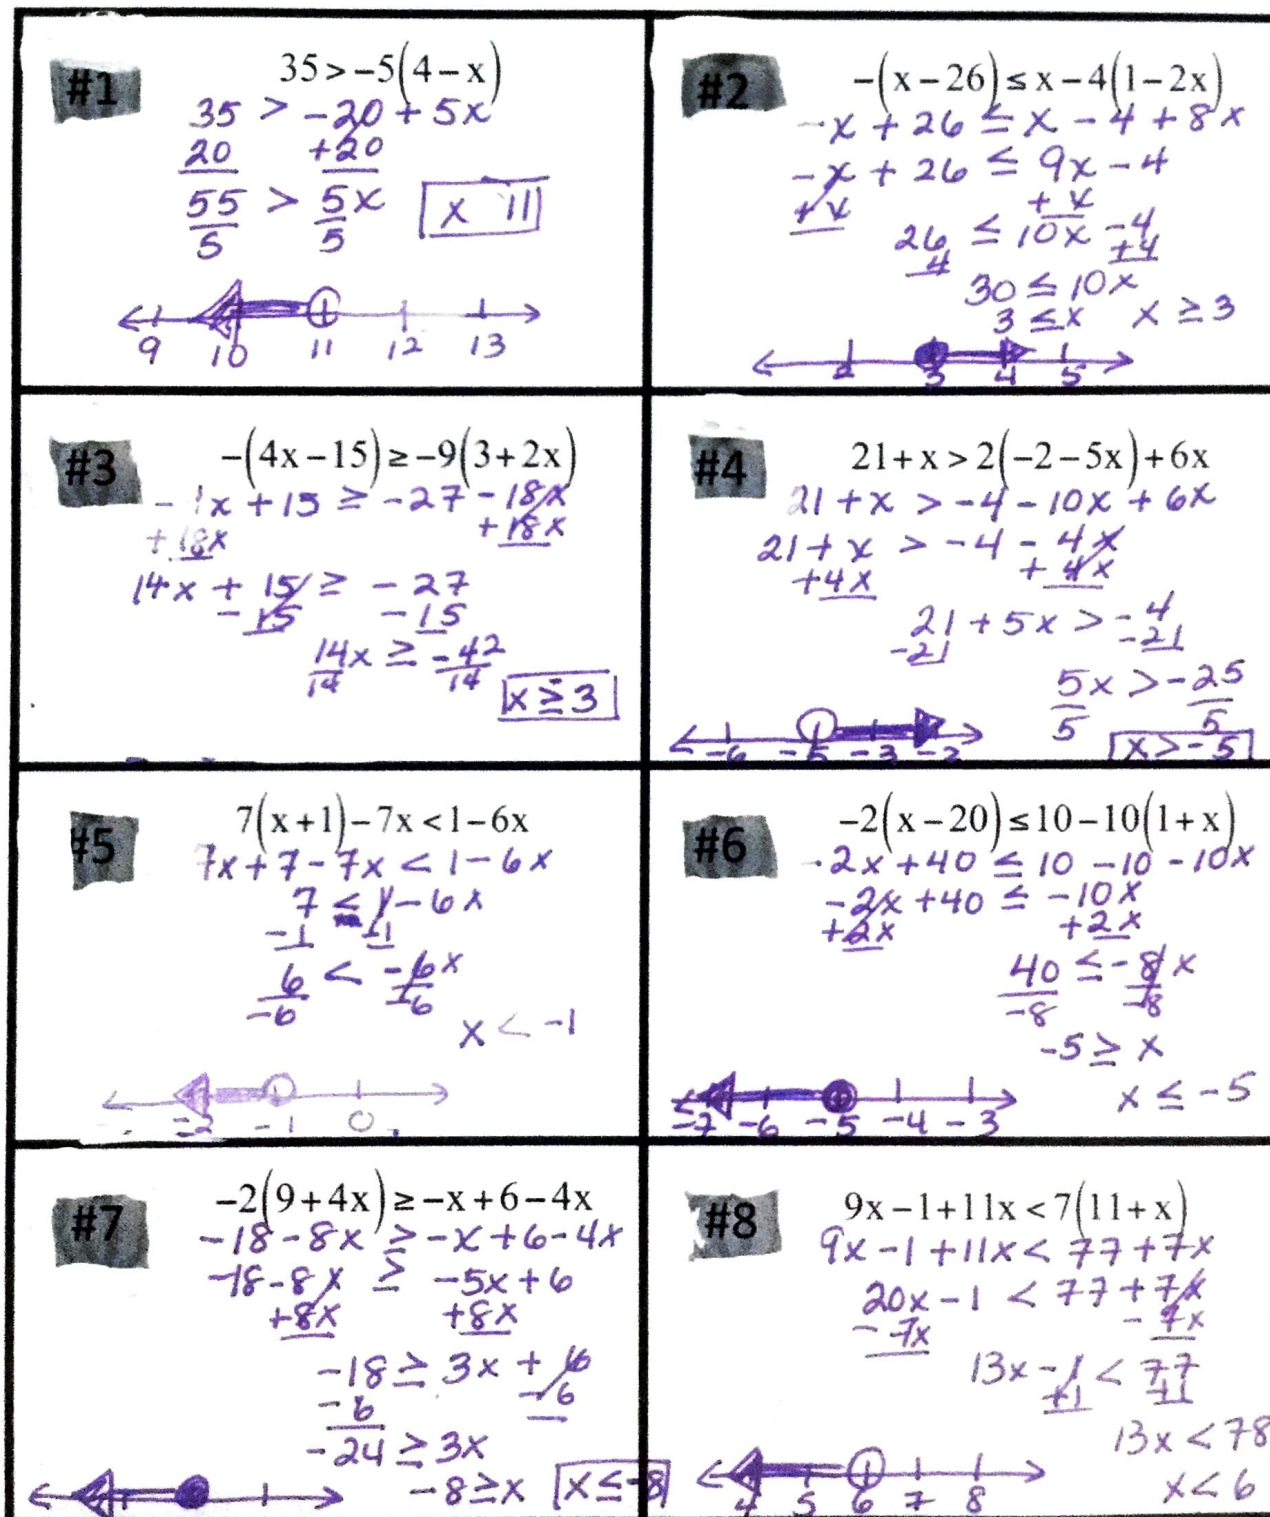 #1
35 > -5(4 - x)
35 > -20 + 5x
20 +20
55 > 5x
5 5
x 11
9 10 11 12 13
#2
-(x - 26) ≤ x - 4(1 - 2x)
-x + 26 ≤ x - 4 + 8x
-x + 26 ≤ 9x - 4
+x +x
26 ≤ 10x - 4
4 +4
30 ≤ 10x
3 ≤ x x ≥ 3
3 4 5
#3
-(4x - 15) ≥ -9(3 + 2x)
x + 15 ≥ -27 - 18x
+18x +18x
14x + 15 ≥ -27
-15 -15
14x ≥ -42
14 14
x ≥ 3
#4
21 + x > 2(-2 - 5x) + 6x
21 + x > -4 - 10x + 6x
21 + x > -4 - 4x
+4x +4x
21 + 5x > -4
-21 -21
5x > -25
5 5
x > -5
-6 -5 -3
#5
7(x + 1) - 7x < 1 - 6x
7x + 7 - 7x < 1 - 6x
7 < 1 - 6x
-1 -1
6 < -6x
-6 -6
x < -1
-2 -1 0
#6
-2(x - 20) ≤ 10 - 10(1 + x)
-2x + 40 ≤ 10 - 10 - 10x
-2x + 40 ≤ -10x
+2x +2x
40 ≤ -8x
-8 -8
-5 ≥ x
x ≤ -5
-7 -6 -5 -4 -3
#7
-2(9 + 4x) ≥ -x + 6 - 4x
-18 - 8x ≥ -x + 6 - 4x
-18 - 8x ≥ -5x + 6
+8x +8x
-18 ≥ 3x + 6
-6 -6
-24 ≥ 3x
-8 ≥ x x ≤ -8
#8
9x - 1 + 11x < 7(11 + x)
9x - 1 + 11x < 77 + 7x
20x - 1 < 77 + 7x
-7x -7x
13x - 1 < 77
+1 +1
13x < 78
x < 6
4 5 6 7 8